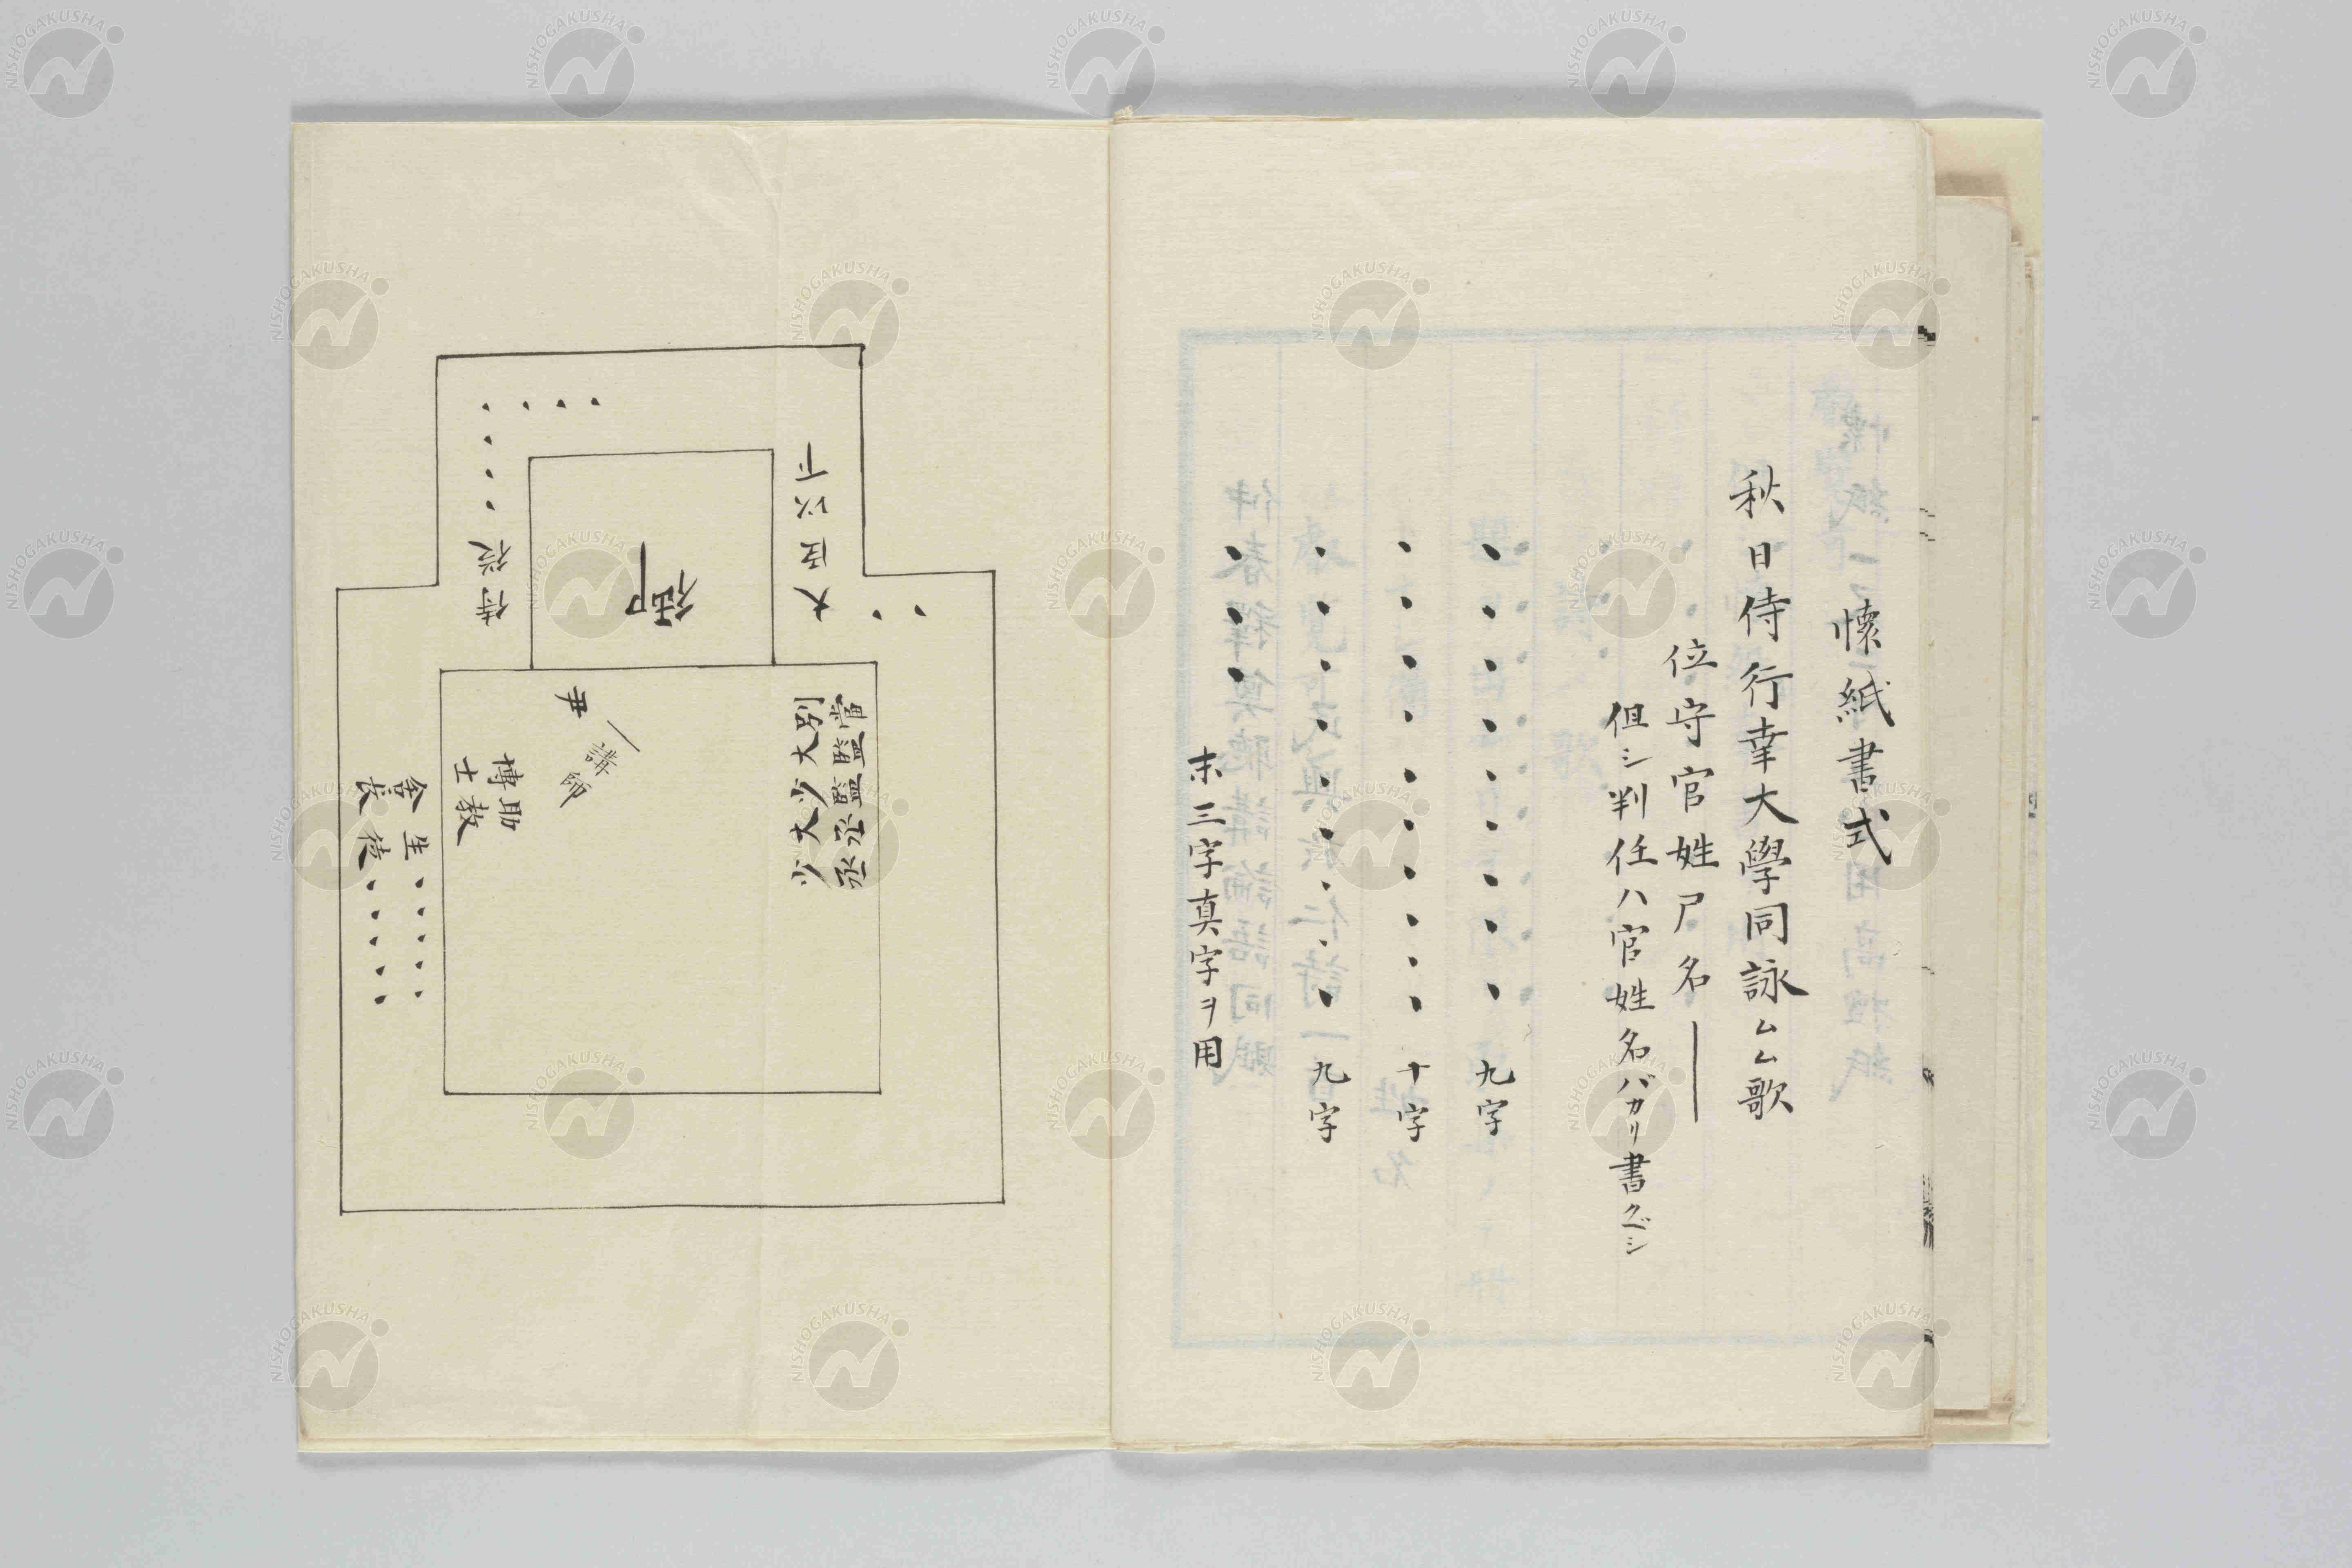 懷紙書式
秋日侍行幸大學同詠ムム歌
位守官姓尸名
但シ判任ハ官姓名バカリ書クベシ
九字
十字
九字
末三字真字ヲ用
大臣以下
御
侍從
當
別
大監
少監
大丞
少丞
講師
博士
助教
舍長
生徒
NISHOGAKUSHA